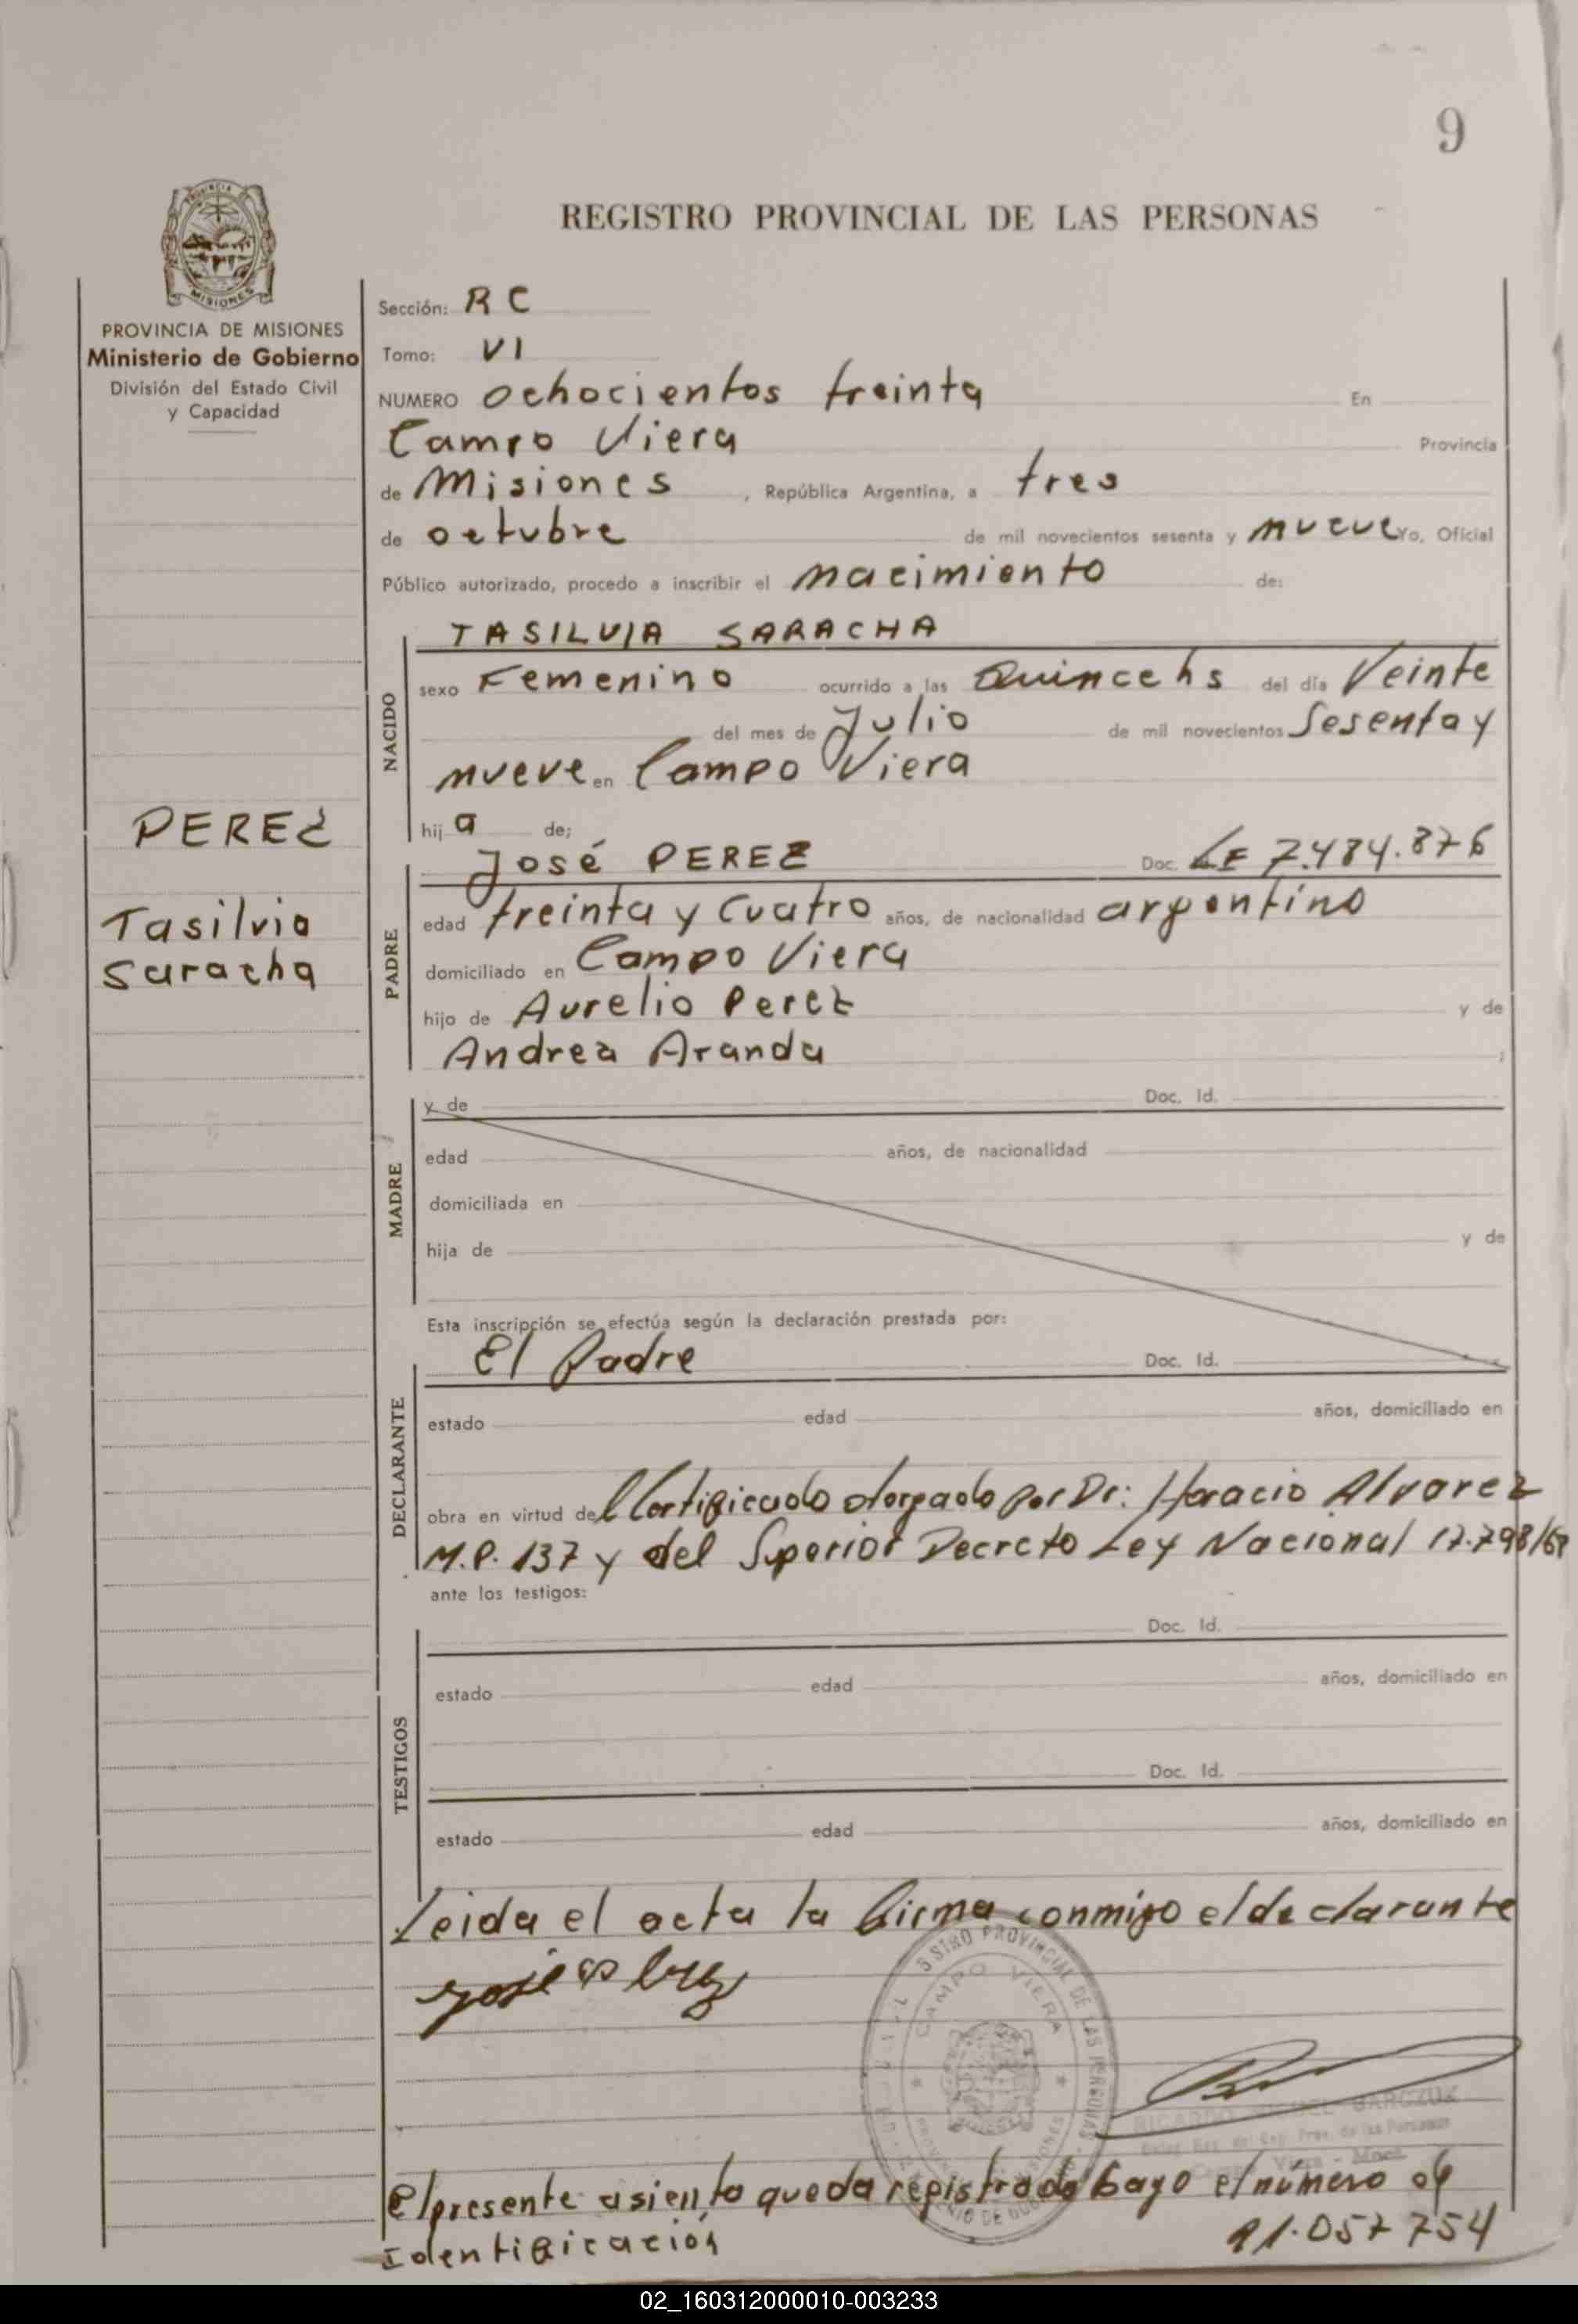 9
REGISTRO PROVINCIAL DE LAS PERSONAS
PROVINCIA DE MISIONES
Ministerio de Gobierno
División del Estado Civil
y Capacidad
PEREZ
Tasilvia
Saracha
Sección: R C
Tomo: VI
NUMERO ochocientos treinta En
Campo Viera Provincia
de Misiones , República Argentina, a tres
de octubre de mil novecientos sesenta y nueve Yo, Oficial
Público autorizado, procedo a inscribir el nacimiento de:
NACIDO
TASILVIA SARACHA
sexo Femenino ocurrido a las Quince hs del día Veinte
del mes de Julio de mil novecientos Sesenta y
nueve en Campo Viera
hij a de;
PADRE
José PEREZ Doc. LE 7.484.876
edad treinta y cuatro años, de nacionalidad argentino
domiciliado en Campo Viera
hijo de Aurelio Perez y de
Andrea Aranda ;
MADRE
y de Doc. Id.
edad años, de nacionalidad
domiciliada en
hija de y de
Esta inscripción se efectúa según la declaración prestada por:
DECLARANTE
El Padre Doc. Id.
estado edad años, domiciliado en
obra en virtud del Certificado otorgado por Dr: Horacio Alvarez
M.P. 137 y del Superior Decreto Ley Nacional 17.798/68
ante los testigos:
TESTIGOS
Doc. Id.
estado edad años, domiciliado en
Doc. Id.
estado edad años, domiciliado en
Leida el acta la firma conmigo el declarante
CAMPO VIERA
El presente asiento queda registrado bajo el número de
Identificación 21.057 754
02_160312000010-003233